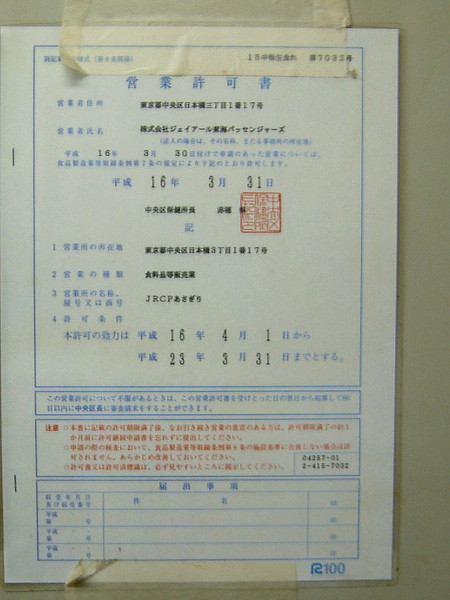 営業許可書
営業者住所 東京都中央区日本橋三丁目1番17号
営業者氏名 株式会社ジェイアール東海パッセンジャーズ
(法人の場合は、その名称、主たる事務所の所在地)
平成 16年 3月 30日付けで申請のあった営業については、
食品製造業等取締条例第7条の規定により下記のとおり許可します。
平成 16年 3月 31日
中央区保健所長 赤穂
記
1 営業所の所在地 東京都中央区日本橋3丁目1番17号
2 営業の種類 食料品等販売業
3 営業所の名称、
屋号又は商号 JRCPあさぎり
4 許可条件
本許可の効力は 平成 16 年 4 月 1 日から
平成 23 年 3 月 31 日までとする。
この営業許可について不服があるときは、この営業許可書を受けとった日の翌日から起算して60
日以内に中央区長に審査請求をすることができます。
注意 ○本書に記載の許可期限満了後、なお引き続き営業の意思のあるときは、許可期限満了の約1
か月前に許可継続申請書を忘れずに提出してください。
○申請の際の検査において、食品製造業等取締条例第6条の施設基準に合致しない場合は許
可されません。あらかじめ改善しておいてください。
04257-01
○許可書又は許可済標識は、必ず見やすいところに掲示してください。
2-415-7032
届出事項
収受年月日
及び収受番号 件名
平成 ・ ・
第 号
平成 ・ ・
第 号
平成 ・ ・
第 号
R100